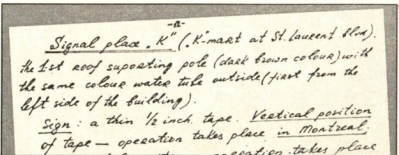 -2-
Signal place „K" („K"-mart at St. Laurent Blvd).
the 1st roof suporting pole (dark brown colour) with
the same colour water tube outside (first from the
left side of the building).
Sign: a thin 1/2 inch tape. Vertical position
of tape — operation takes place in Montreal.
operation takes place